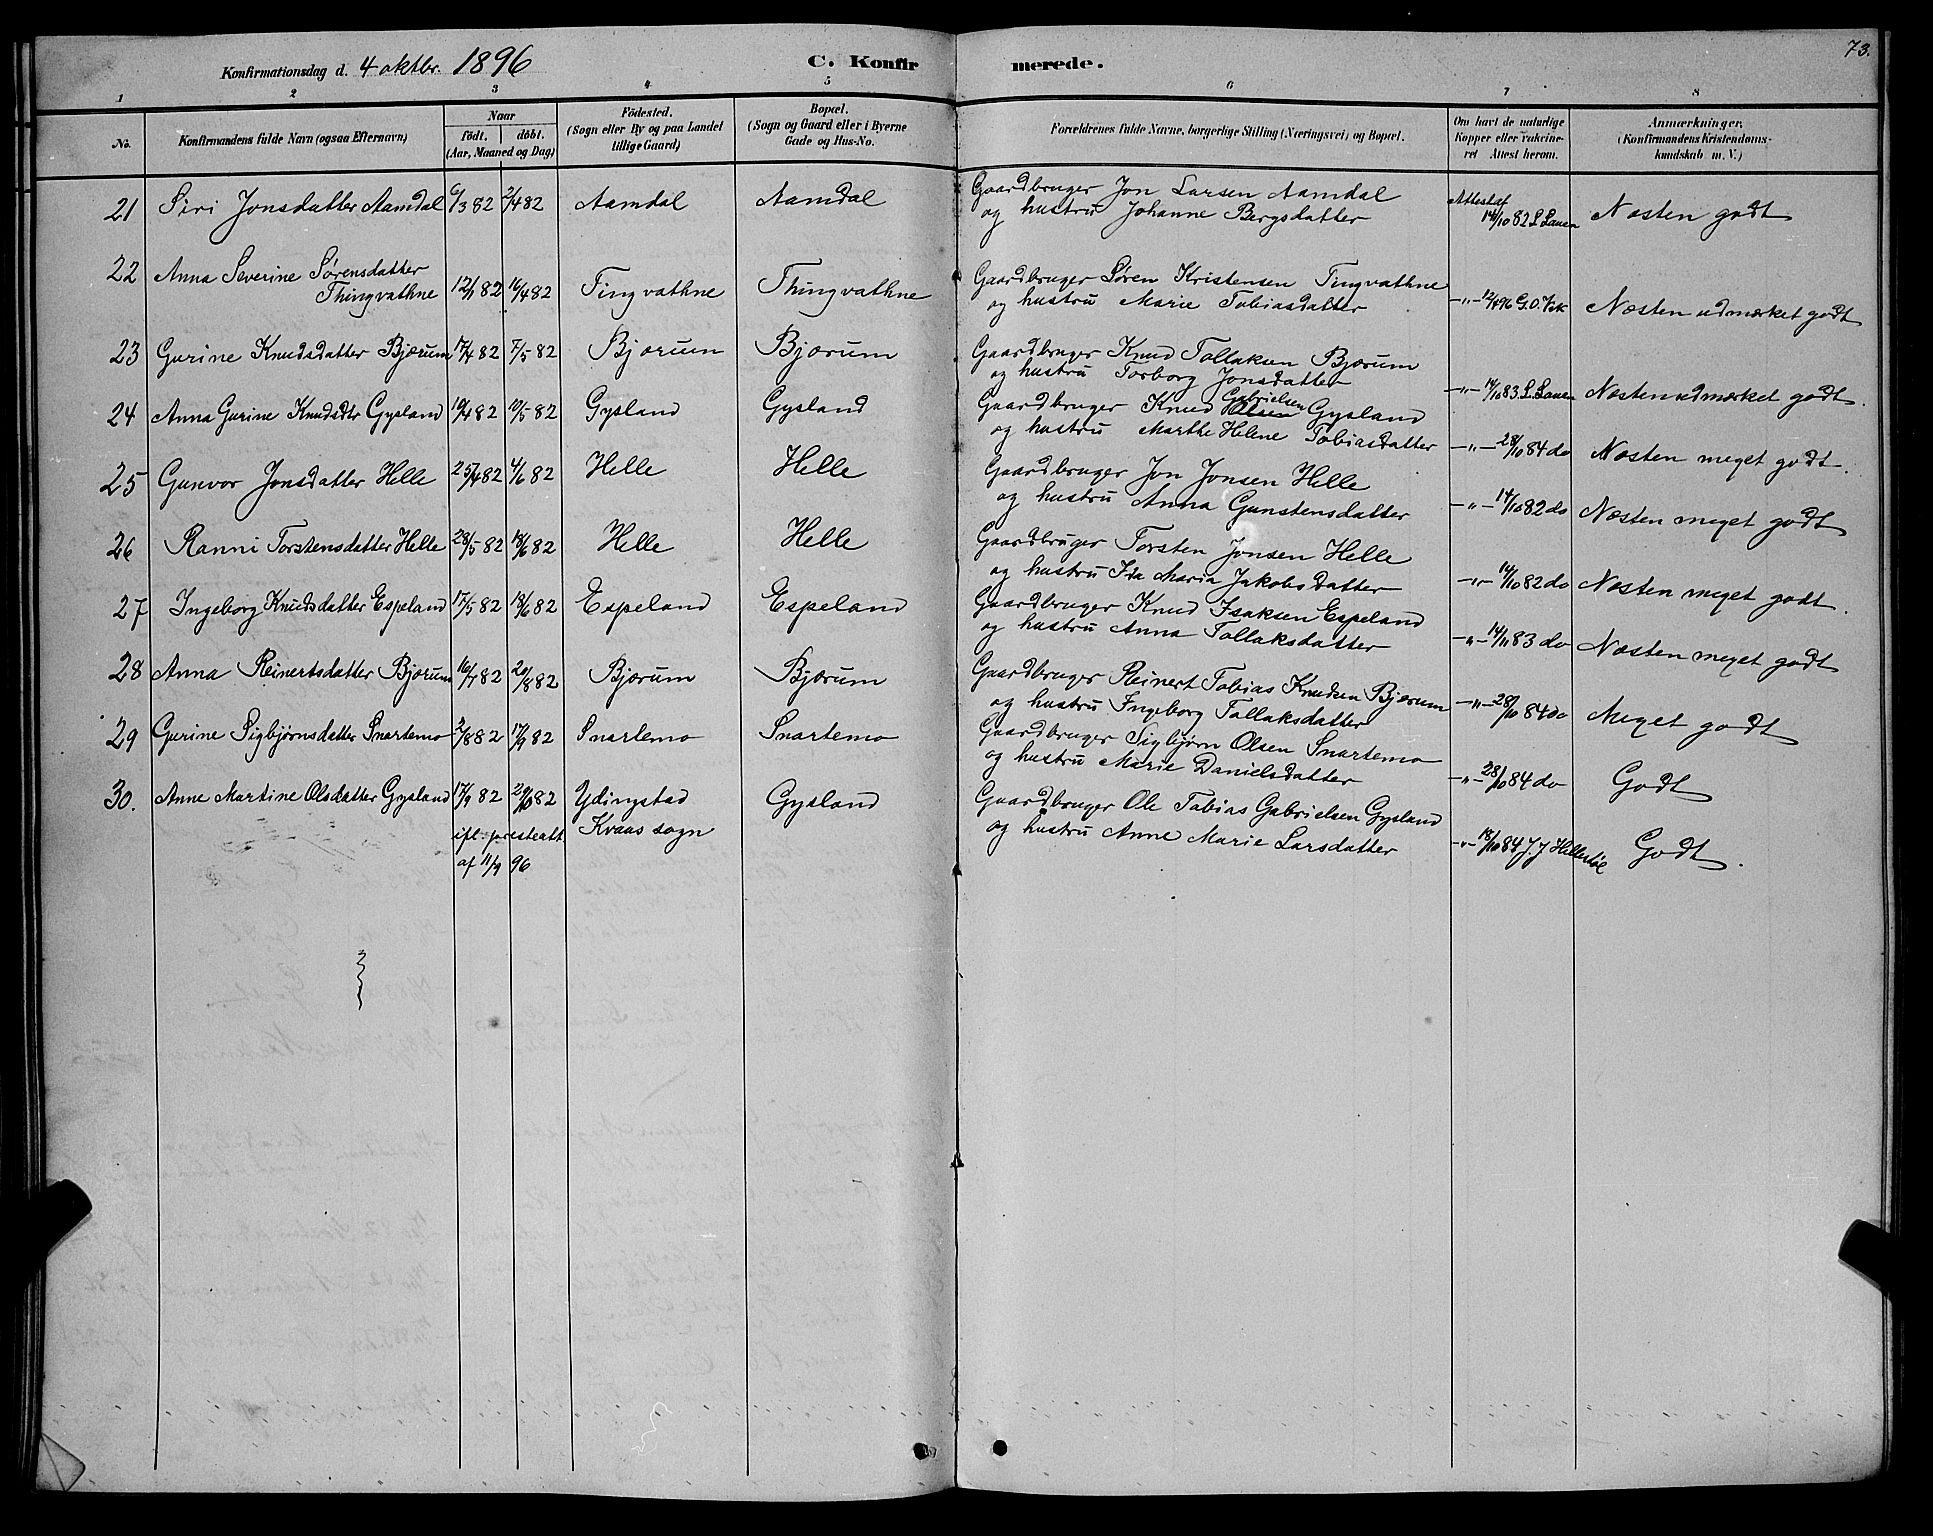 73.
Konfirmationsdag d. 4 oktbr. 1896 C. Konfir merede.
1 2 3 4 5 6 7 8
No. Konfirmandens fulde Navn (ogsaa Efternavn) Naar födt. döbt. (Aar, Maaned og Dag) Födested. (Sogn eller By og paa Landet tillige Gaard) Bopæl. (Sogn og Gaard eller i Byerne Gade og Hus-No. Forældrenes fulde Navne, borgerlige Stilling (Næringsvei) og Bopæl. Om havt de naturlige Kopper eller vakcineret Attest herom. Anmærkninger, (Konfirmandens Kristendomskundskab m. V.)
21 Siri Jonsdatter Aamdal 6/3 82 2/4 82 Aamdal Aamdal Gaardbruger Jon Larsen Aamdal
og hustru Johanne Bergsdatter Attest af 14/10 82 L Lauen Næsten godt
22 Anna Severine Sørensdatter
Thingvathne 12/1 82 16/4 82 Tingvathne Thingvathne Gaardbruger Søren Kristensen Tingvathne
og hustru Marie Tobiasdatter -"- 12/4 96 G.O. Vik Næsten udmærket godt
23 Gurine Knudsdatter Bjærum 17/4 82 7/5 82 Bjærum Bjærum Gaardbruger Knud Tollaksen Bjærum
og hustru Torborg Jonsdatter -"- 14/10 83 L. Lauen Næsten udmærket godt.
24 Anna Gurine Knudsdtr Gysland 10/4 82 10/5 82 Gysland Gysland Gaardbruger Knud Olsen Gabrielsen Gysland
og hustru Marthe Helene Tobiasdatter -"- 28/10 84 do Næsten meget godt.
25 Gunvor Jonsdatter Helle 25/4 82 4/6 82 Helle Helle Gaardbruger Jon Jonsen Helle
og hustru Anna Gunstensdatter -"- 14/10 82 do Næsten meget godt
26 Ranni Torstensdatter Helle 28/5 82 18/6 82 Helle Helle Gaardbruger Torsten Jonsen Helle
og hustru Ida Maria Jakobsdatter -"- 14/10 82 do Næsten meget godt.
27 Ingeborg Knudsdatter Espeland 17/5 82 18/6 82 Espeland Espeland Gaardbruger Knud Isaksen Espeland
og hustru Anna Tollaksdatter -"- 14/11 83 do Næsten meget godt
28 Anna Reinertsdatter Bjærum 16/7 82 20/8 82 Bjærum Bjærum Gaardbruger Reinert Tobias Knudsen Bjærum
og hustru Ingeborg Tollaksdatter -"- 28/10 84 do Meget godt
29 Gurine Sigbjørnsdatter Snartemo 2/8 82 17/9 82 Snartemo Snartemo Gaardbruger Sigbjørn Olsen Snartemo
og hustru Marie Danielsdatter -"- 28/10 84 do Godt
30. Anne Martine Olsdatter Gysland 17/9 82 29/10 82 Ydingstad Gysland Gaardbruger Ole Tobias Gabrielsen Gysland
ifl. presteatt. Kvaas sogn og hustru Anne Marie Larsdatter -"- 18/10 84 J.J Hellestøl Godt.
af 11/9 96